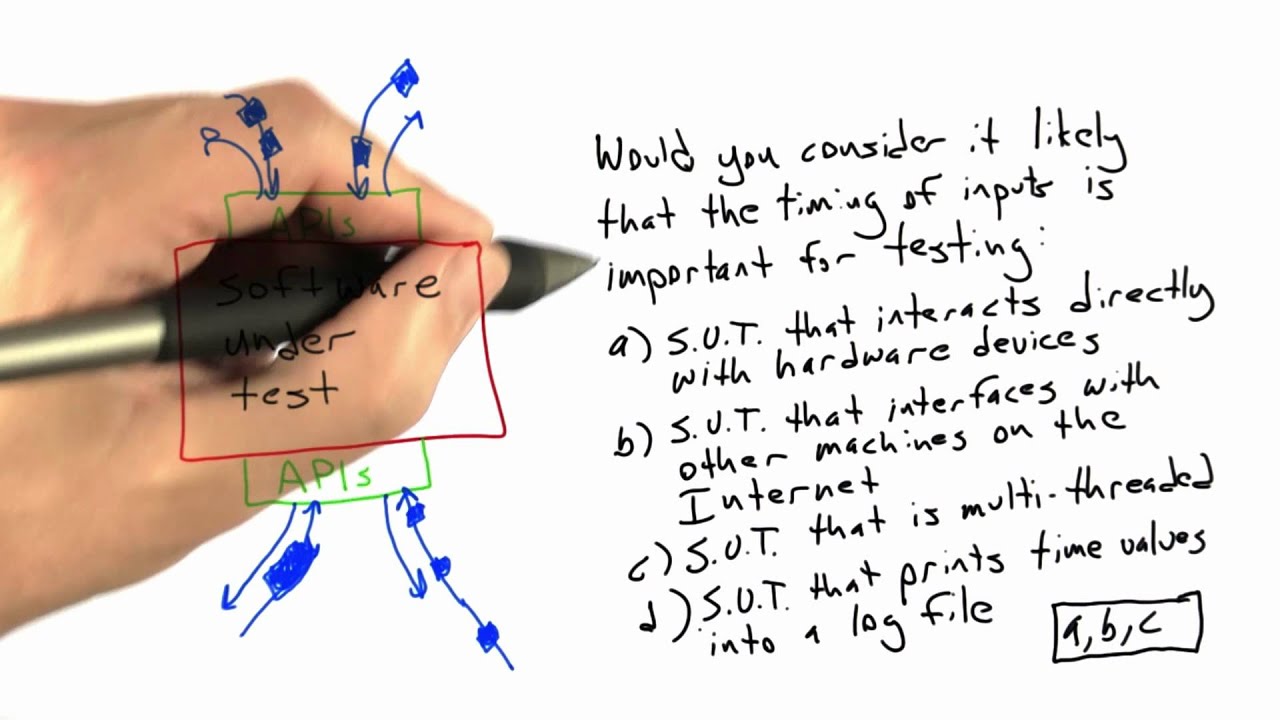 APIs
Software
under
test
APIs
Would you consider it likely
that the timing of inputs is
important for testing:
a) S.U.T. that interacts directly
with hardware devices
b) S.U.T. that interfaces with
other machines on the
Internet
c) S.U.T. that is multi-threaded
d) S.U.T. that prints time values
into a log file
a, b, c